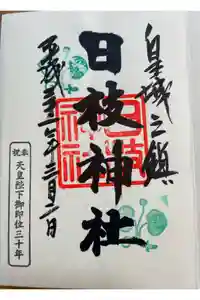 皇城之鎮
日枝神社
平成三十一年三月二日
日枝
神社
奉祝
天皇陛下御即位三十年